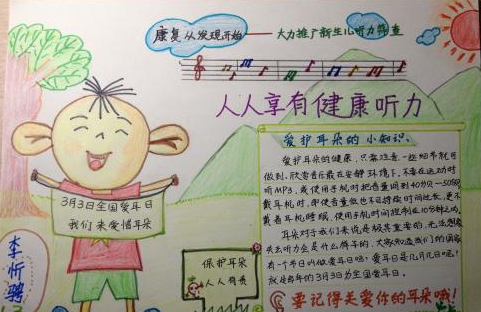 康复从发现开始——大力推广新生儿听力筛查
人人享有健康听力
爱护耳朵的小知识
爱护耳朵的健康，只需注意一些细节就可
做到。欣赏音乐最在安静环境下，不要在运动时
听MP3，或使用手机时把音量调到40分贝-50分贝
戴耳机时，即使音量低也不可持续时间过长，更不
戴着耳机睡眠，使用手机时间控制在10分钟之内。
耳朵对于我们来说是极其重要的，无法想象
失去听力会是什么样的，大家知道我们的国家
有一个节日叫做爱耳日吗？爱耳日是几月几日呢？
就是每年的3月3日为全国爱耳日。
要记得关爱你的耳朵哦！
3月3日全国爱耳日
我们来爱惜耳朵
保护耳朵
人人有责
李忻骋